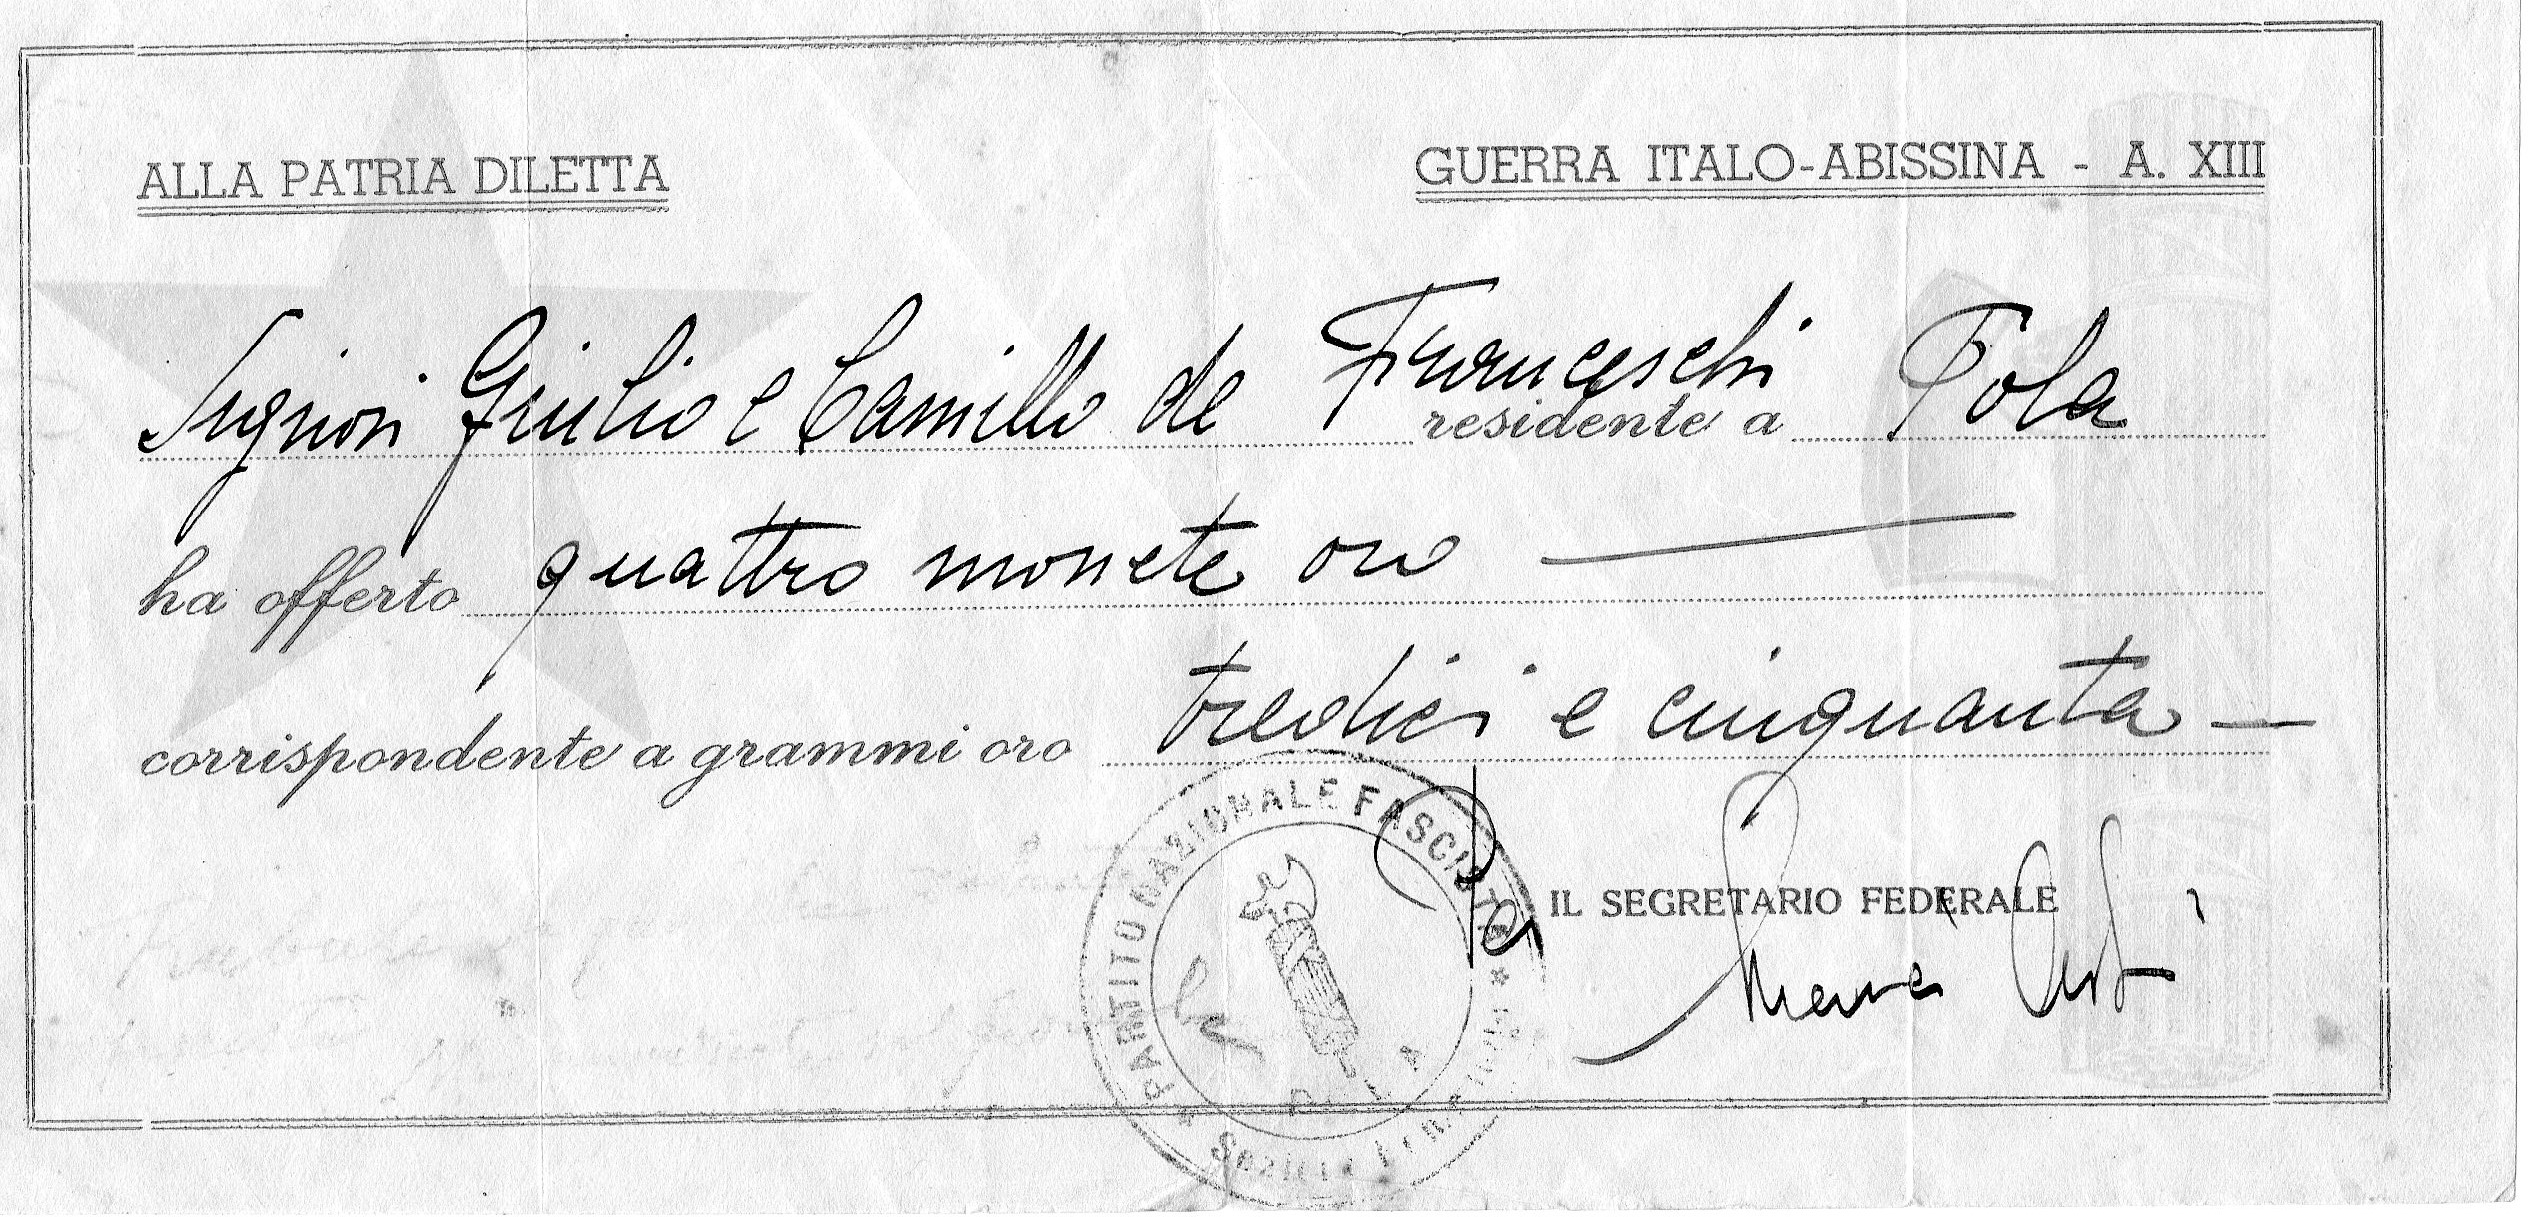 ALLA PATRIA DILETTA
GUERRA ITALO-ABISSINA - A. XIII
Signori Giulio e Camillo de Franceschi residente a Pola
ha offerto quattro monete oro
corrispondente a grammi oro tredici e cinquanta
PARTITO NAZIONALE FASCISTA
POLA
p IL SEGRETARIO FEDERALE